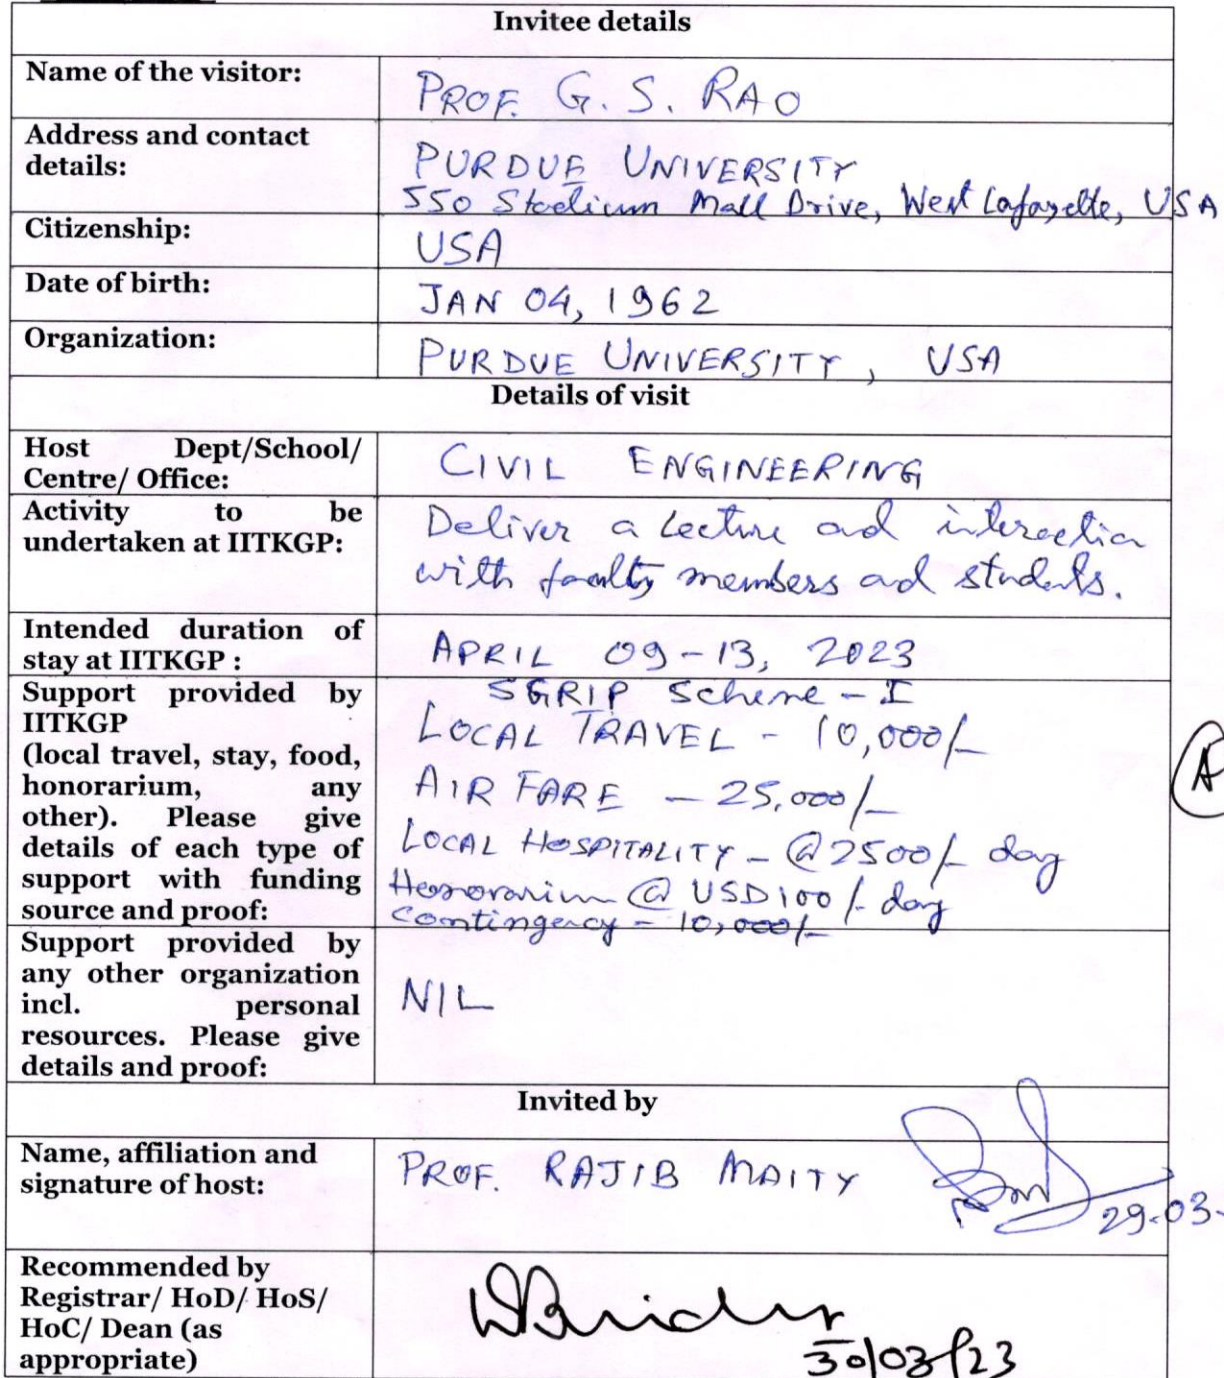 Invitee details
Name of the visitor:
PROF. G. S. RAO
Address and contact
details:
PURDUE UNIVERSITY
550 Stadium Mall Drive, West Lafayette, USA
Citizenship:
USA
Date of birth:
JAN 04, 1962
Organization:
PURDUE UNIVERSITY, USA
Details of visit
Host Dept/School/
Centre/ Office:
CIVIL ENGINEERING
Activity to be
undertaken at IITKGP:
Deliver a Lecture and interaction
with faculty members and students.
Intended duration of
stay at IITKGP :
APRIL 09-13, 2023
Support provided by
IITKGP
(local travel, stay, food,
honorarium, any
other). Please give
details of each type of
support with funding
source and proof:
SGRIP Scheme - I
LOCAL TRAVEL - 10,000/-
AIR FARE - 25,000/-
LOCAL HOSPITALITY - @2500/- day
Honorarium @ USD100/- day
Contingency - 10,000/-
A
Support provided by
any other organization
incl. personal
resources. Please give
details and proof:
NIL
Invited by
Name, affiliation and
signature of host:
PROF. RAJIB MAITY
29.03.
Recommended by
Registrar/ HoD/ HoS/
HoC/ Dean (as
appropriate)
30/03/23